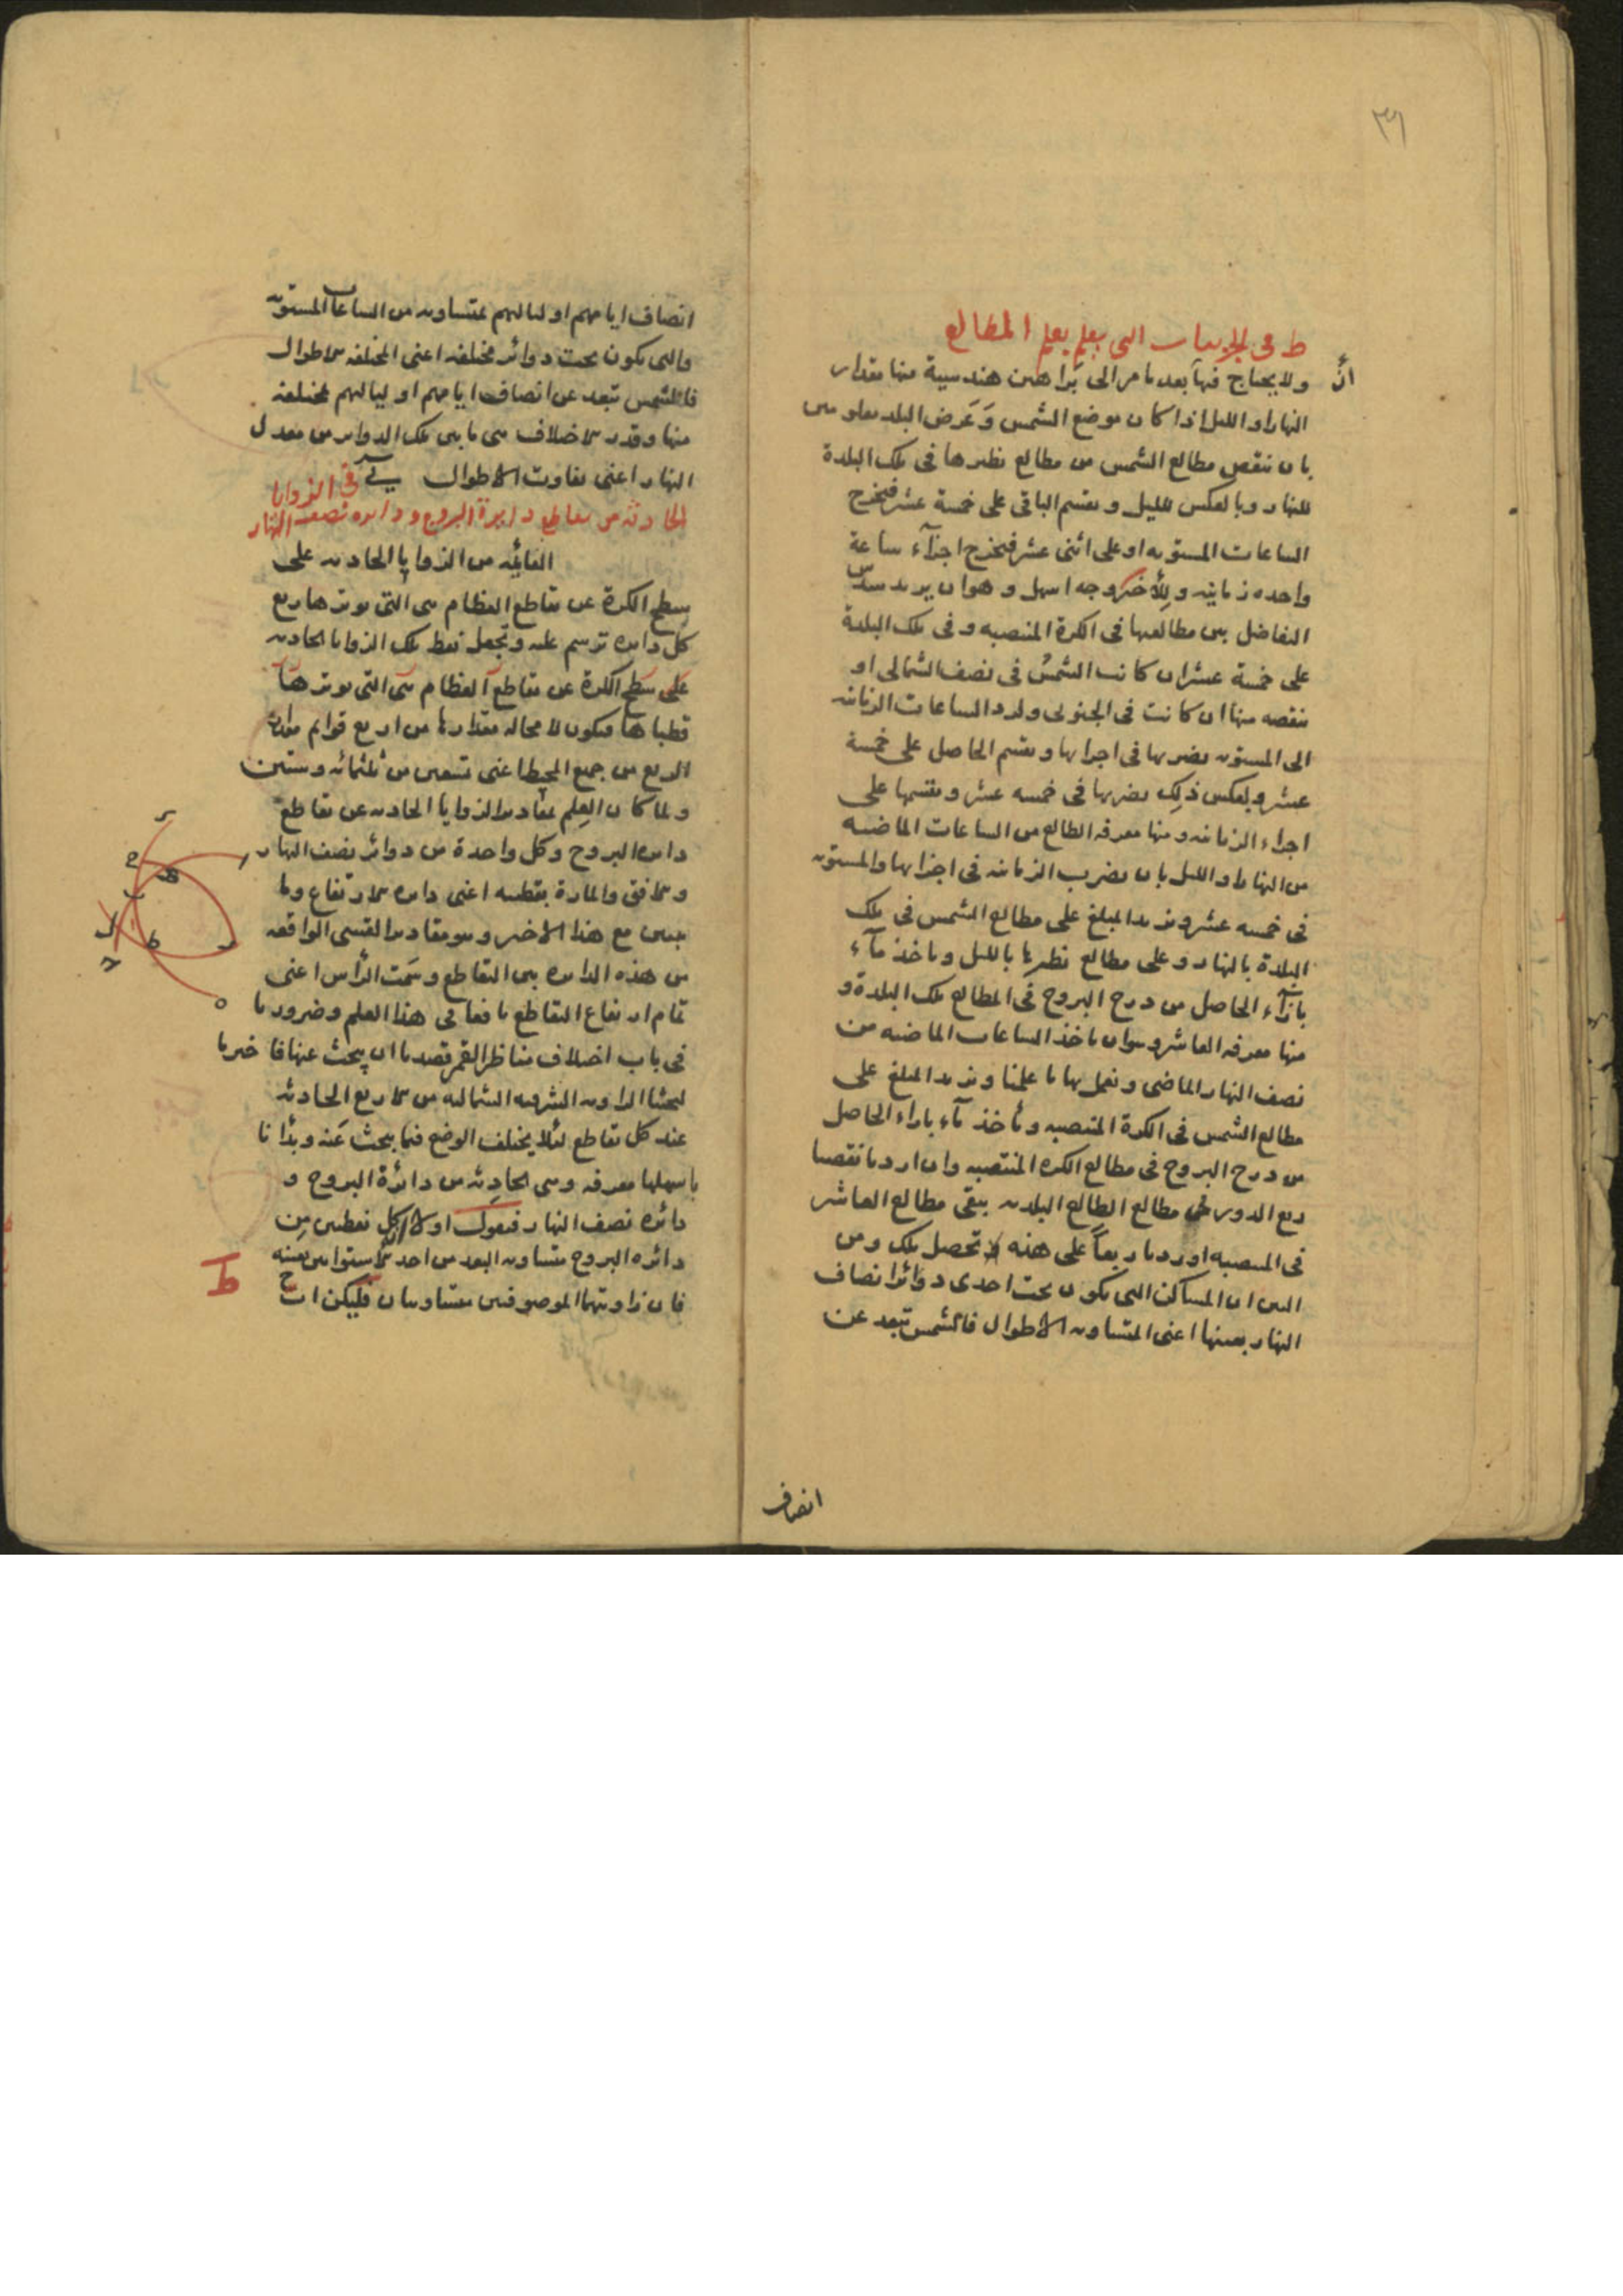 ٣٦
ط في الجزئيات التي يعلم بعلم المطالع
ولا يحتاج فيها بعد ما مر الى براهين هندسية منها مقدار
ان
النهار او الليل اذا كان موضع الشمس وعرض البلد معلومين
بان ننقص مطالع الشمس من مطالع نظيرها في تلك البلدة
للنهار وبالعكس لليل ونقسم الباقى على خمسة عشر فيخرج
الساعات المستويه او على اثنى عشر فيخرج اجزآء ساعة
واحده زمانيه وللأخير وجه اسهل وهو ان يزيد سدس
التفاضل بين مطالعها في الكرة المنتصبه وفي تلك البلدة
على خمسة عشر ان كانت الشمس في نصف الشمالى او
ننقصه منها ان كانت في الجنوبى ولرد الساعات الزمانيه
الى المستويه نضربها في اجزايها ونقسم الحاصل على خمسة
عشر وبعكس ذلك نضربها في خمسه عشر ونقسمها على
اجزاء الزمانيه ومنها معرفه الطالع من الساعات الماضيه
من النهار او الليل بان نضرب الزمانيه في اجزايها والمستويه
في خمسه عشر ونزيد المبلغ على مطالع الشمس في تلك
البلدة بالنهار وعلى مطالع نظيرها بالليل وناخذ مآء
بازآء الحاصل من درج البروج في المطالع تلك البلدة و
منها معرفه العاشر وهو ان ناخذ الساعات الماضيه من
نصف النهار الماضى ونعمل بها ما علمنا ونزيد المبلغ على
مطالع الشمس في الكرة المنتصبه ونأخذ مآء بازاء الحاصل
من درج البروج في مطالع الكره المنتصبه وان اردنا نقصنا
ربع الدور من مطالع الطالع البلديه يبقى مطالع العاشر
في المنتصبه او زدنا ربعاً على هذه تحصل تلك ومن
البين ان المساكن التى تكون تحت احدى دوائر انصاف
النهار بعينها اعنى المتساويه الاطوال فالشمس تبعد عن
انصاف
انصاف ايامهم او لياليهم بمتساويه من الساعات المستويه
والتى تكون تحت دوائر مختلفه اعنى المختلفه الاطوال
فالشمس تبعد عن انصاف ايامهم او لياليهم مختلفه
منها وقدر الاختلاف هى ما بين تلك الدواير من معدل
النهار اعنى تفاوت الاطوال ي في الزوايا
الحادثه من تقاطع دايرة البروج ودايره نصف النهار
القائمه من الزوايا الحادثه على
بسطح الكرة عن تقاطع العظام هى التى يوترها ربع
كل دايره ترسم عليه ونجعل نقط تلك الزوايا الحادثه
على سطح الكرة عن تقاطع العظام هى التى يوترها
قطباها فيكون لا محاله مقدارها من اربع قوايم مقدار
الربع من جميع المحيط اعنى تسعين من ثلثمائه وستين
ولما كان العلم بمقادير الزوايا الحادثه عن تقاطع
دايره البروج وكل واحدة من دوائر نصف النهار
والافق والمارة بقطبيه اعنى دايره الارتفاع وما
يتبين مع هذا الاخير وهو مقادير القسى الواقعه
من هذه الدايره بين التقاطع وسمت الرأس اعنى
تمام ارتفاع التقاطع نافعا في هذا العلم وضروريا
في باب اختلاف مناظر القمر قصدنا ان يبحث عنها فاخترنا
لبحثنا الزاويه الشرقيه الشماليه من الاربع الحادثه
عند كل تقاطع لئلا يختلف الوضع فيما يبحث عنه وبدأنا
باسهلها معرفه وهى الحادثه من دائرة البروج و
دائره نصف النهار فنقول اولا كل نقطتين من
دائره البروج متساويه البعد من احد الاستوائين بعينه
فان زاويتهما الموصوفتين متساويتان فليكن ا ب ح
ط